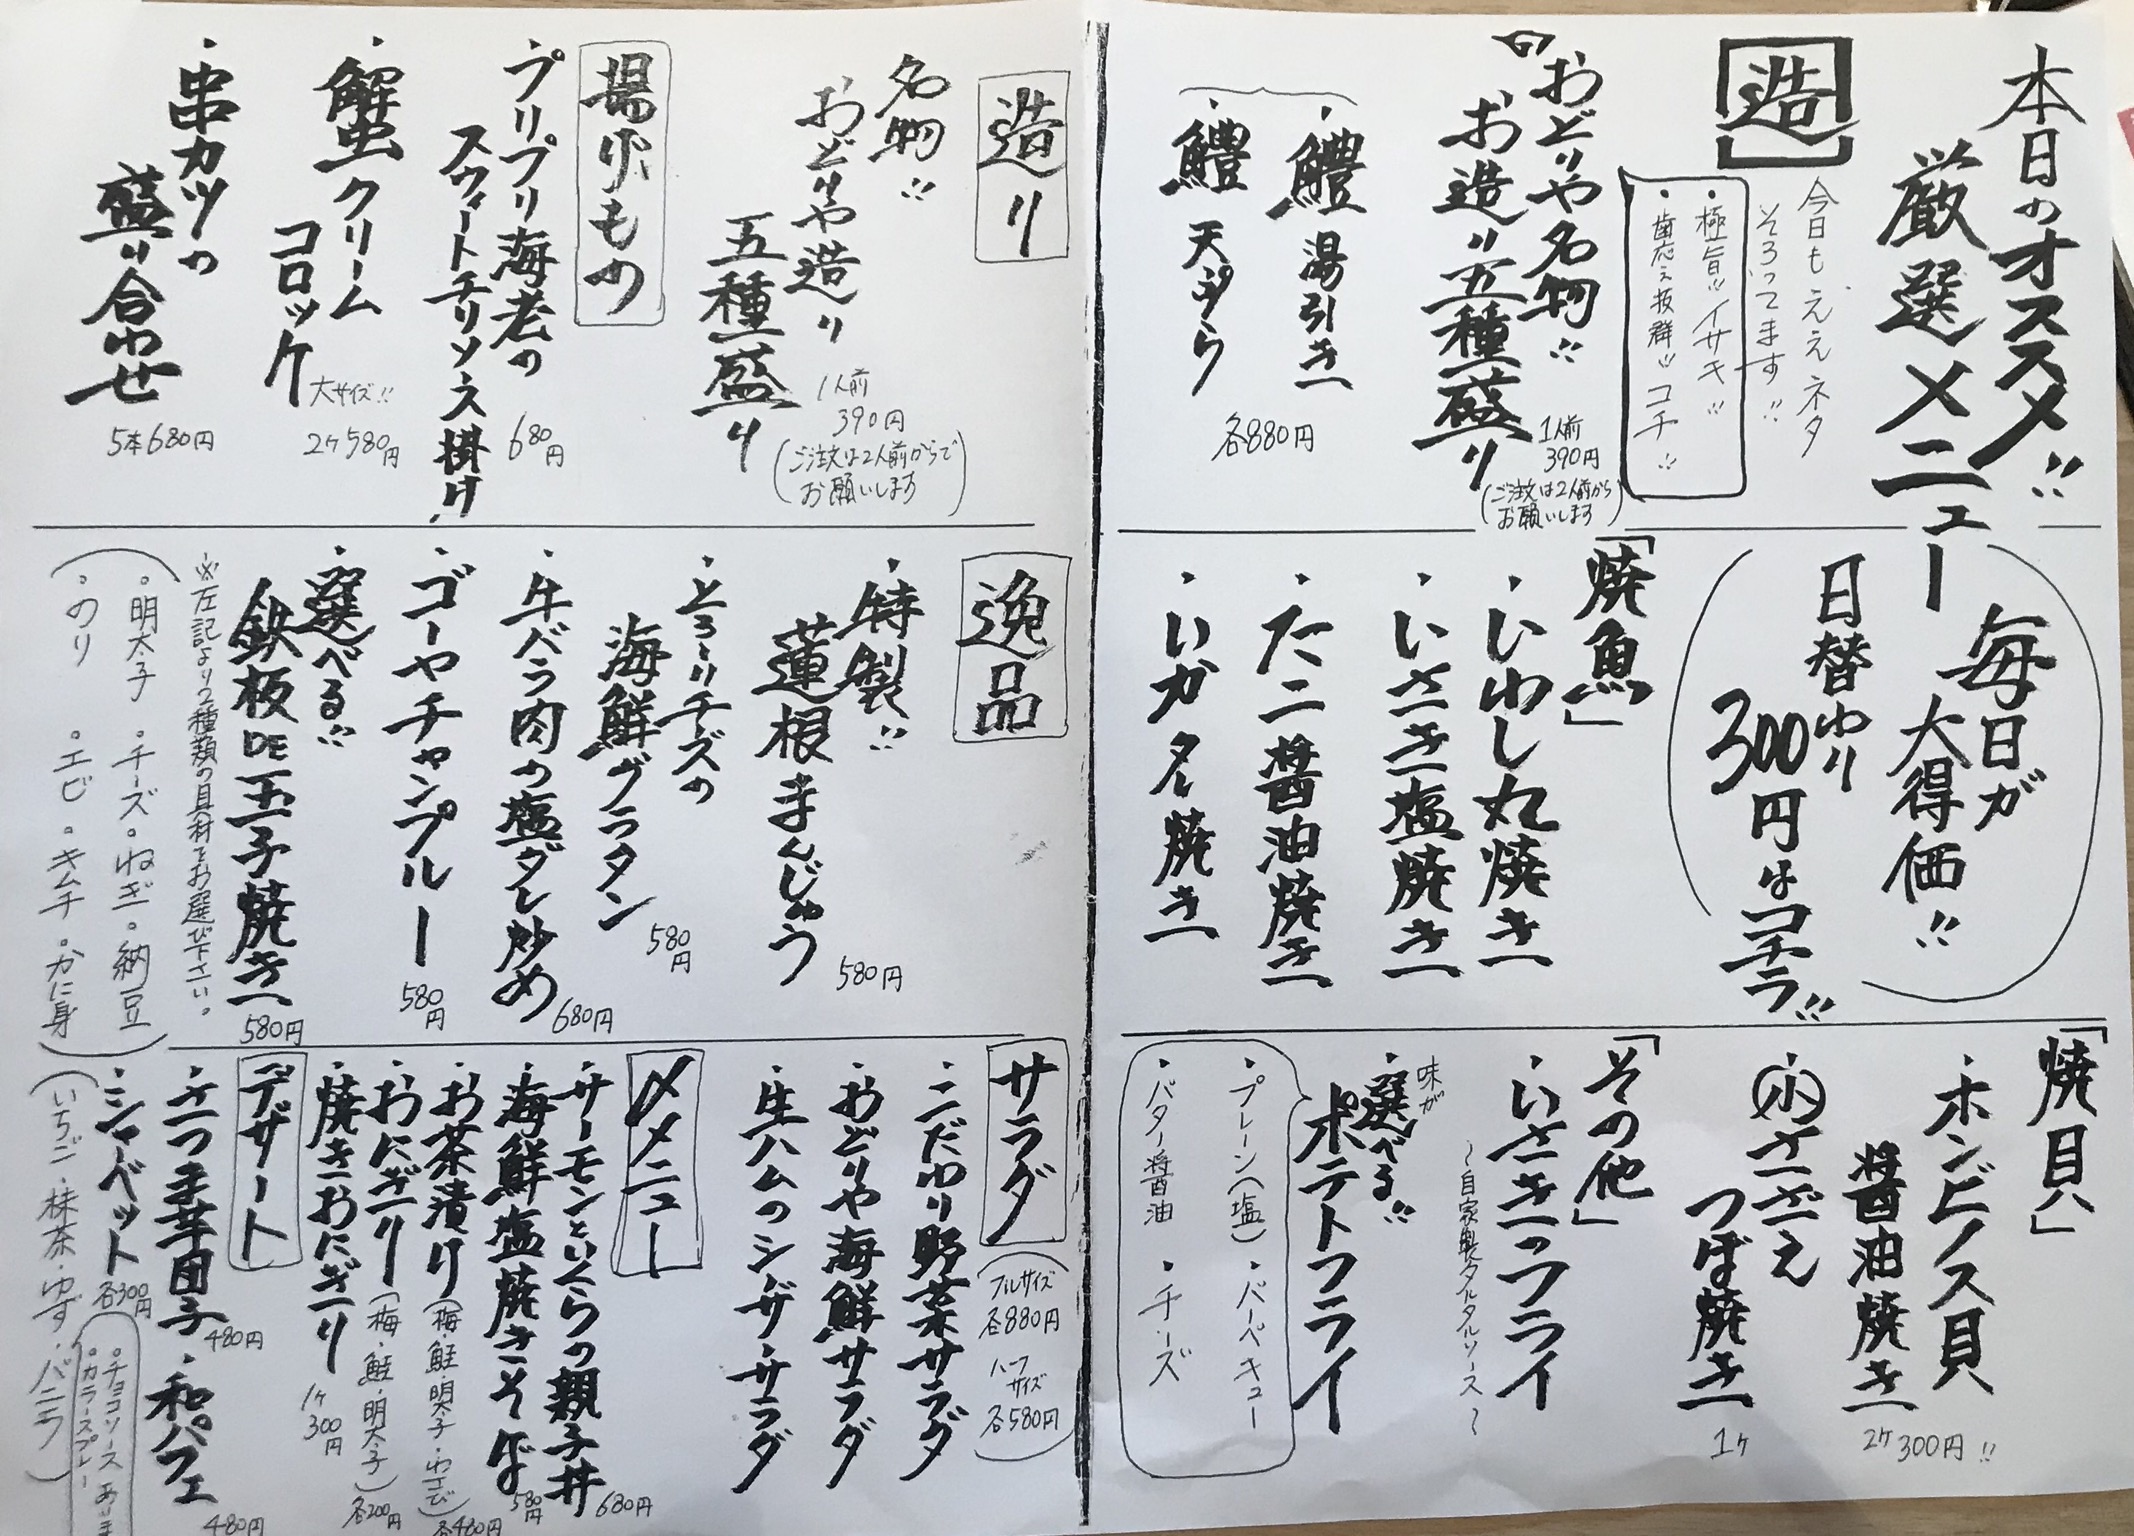 本日のオススメ!!
厳選メニュー
造
今日もええネタ
そろってます!!
・極旨!!イサキ!!
・歯応え抜群!!コチ!!
おどりや名物!!
お造り五種盛り
1人前
390円
(ご注文は2人前から
お願いします)
・鱧湯引き
・鱧天ぷら
各880円
毎日が
大得価!!
日替わり
300円はコチラ!!
「焼魚」
・いわし丸焼き
・いさき塩焼き
・たこ醤油焼き
・いかタレ焼き
「焼貝」
・ホンビノス貝
醤油焼き
2ケ300円!!
・小さざえ
つぼ焼き
1ケ
「その他」
・いさきのフライ
〜自家製タルタルソース〜
味が
・選べる!!
ポテトフライ
・プレーン(塩)・バーベキュー
・バター醤油・チーズ
造り
名物!!
おどりや造り
五種盛り
1人前
390円
(ご注文は2人前からで
お願いします)
揚げもの
・プリプリ海老の
スウィートチリソース掛け
680円
・蟹クリーム
コロッケ
大サイズ!!
2ケ580円
・串カツの
盛り合わせ
5本680円
逸品
・特製!!
蓮根まんじゅう
580円
・とろ〜りチーズの
海鮮グラタン
580円
・牛バラ肉の塩ダレ炒め
680円
・ゴーヤチャンプルー
580円
・選べる!!
鉄板DE玉子焼き
580円
※左記より2種類の具材をお選び下さい。
(・明太子・チーズ・ねぎ・納豆
・のり・エビ・キムチ・かに身)
サラダ
(フルサイズ
各880円
ハーフ
サイズ
各580円)
・こだわり野菜サラダ
・おどりや海鮮サラダ
・生ハムのシーザーサラダ
〆メニュー
・サーモンといくらの親子丼
680円
・海鮮塩焼きそば
580円
・お茶漬け(梅・鮭・明太子・わさび)
各480円
・おにぎり(梅・鮭・明太子)
各200円
・焼きおにぎり
1ケ
300円
デザート
・さつま芋団子
480円
・和パフェ
480円
・シャーベット
各300円
(いちご・抹茶・ゆず・バニラ)
・チョコソース
・カラースプレー